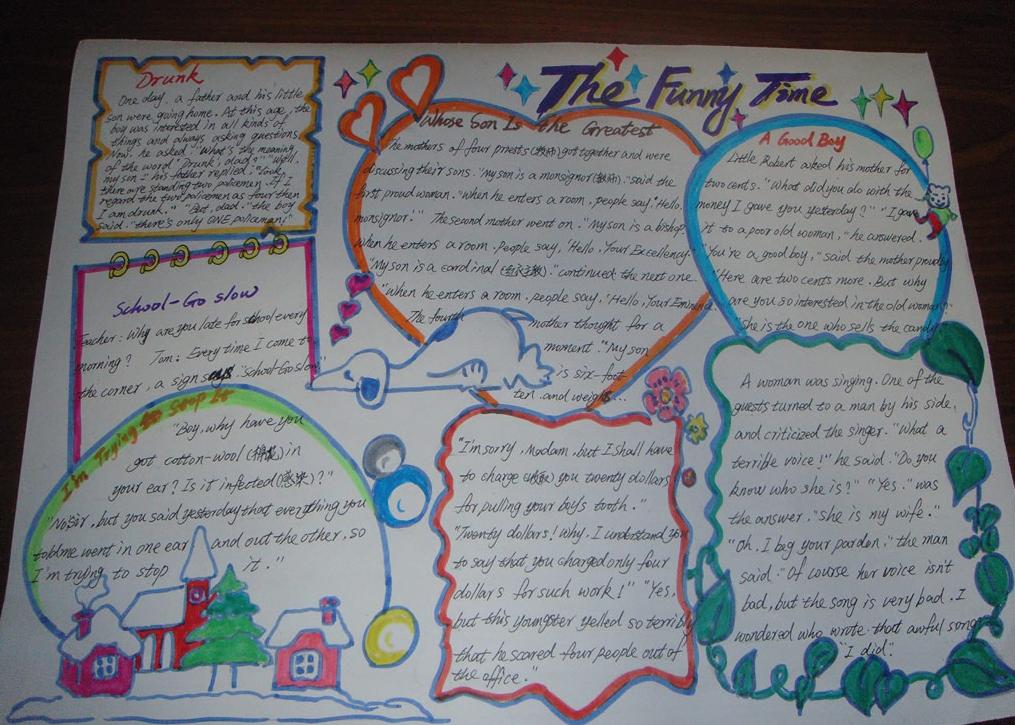 The Funny Time
Drunk
One day, a father and his little
son were going home. At this age, the
boy was interested in all kinds of
things and always asking questions.
Now, he asked, "What's the meaning
of the word 'Drunk', dad?" "Well,
my son," his father replied, "Look,
there are standing two policemen. If I
regard the two policemen as four then
I am drunk." "But, dad," the boy
said, "there's only ONE policeman!"
School-Go slow
Teacher: Why are you late for school every
morning? Tom: Every time I come to
the corner, a sign says, "School-Go slow".
I'm Trying to Stop It
"Boy, why have you
got cotton-wool (棉花) in
your ear? Is it infected (感染)?"
"No, Sir, but you said yesterday that everything you
told me went in one ear and out the other, so
I'm trying to stop it."
Whose Son Is the Greatest
The mothers of four priests (教师) got together and were
discussing their sons. "My son is a monsignor," said the
first proud woman. "When he enters a room, people say, 'Hello,
monsignor'." The second mother went on, "My son is a bishop.
When he enters a room, people say, 'Hello, Your Excellency'."
"My son is a cardinal," continued the next one.
"When he enters a room, people say, 'Hello, Your Eminence
The fourth mother thought for a
moment. "My son
is six-foot-
ten and weighs...
A Good Boy
Little Robert asked his mother for
two cents. "What did you do with the
money I gave you yesterday?" "I gave
it to a poor old woman," he answered.
"You're a good boy," said the mother proudly.
"Here are two cents more. But why
are you so interested in the old woman?"
She is the one who sells the candy
"I'm sorry, Madam, but I shall have
to charge you twenty dollars
for pulling your boy's tooth."
"Twenty dollars! Why, I understand you
to say that you charged only four
dollars for such work!" "Yes,
but this youngster yelled so terribly
that he scared four people out of
the office."
A woman was singing. One of the
guests turned to a man by his side,
and criticized the singer. "What a
terrible voice!" he said. "Do you
know who she is?" "Yes." was
the answer. "she is my wife."
"Oh, I beg your pardon," the man
said. "Of course her voice isn't
bad, but the song is very bad. I
wondered who wrote that awful song
"I did".